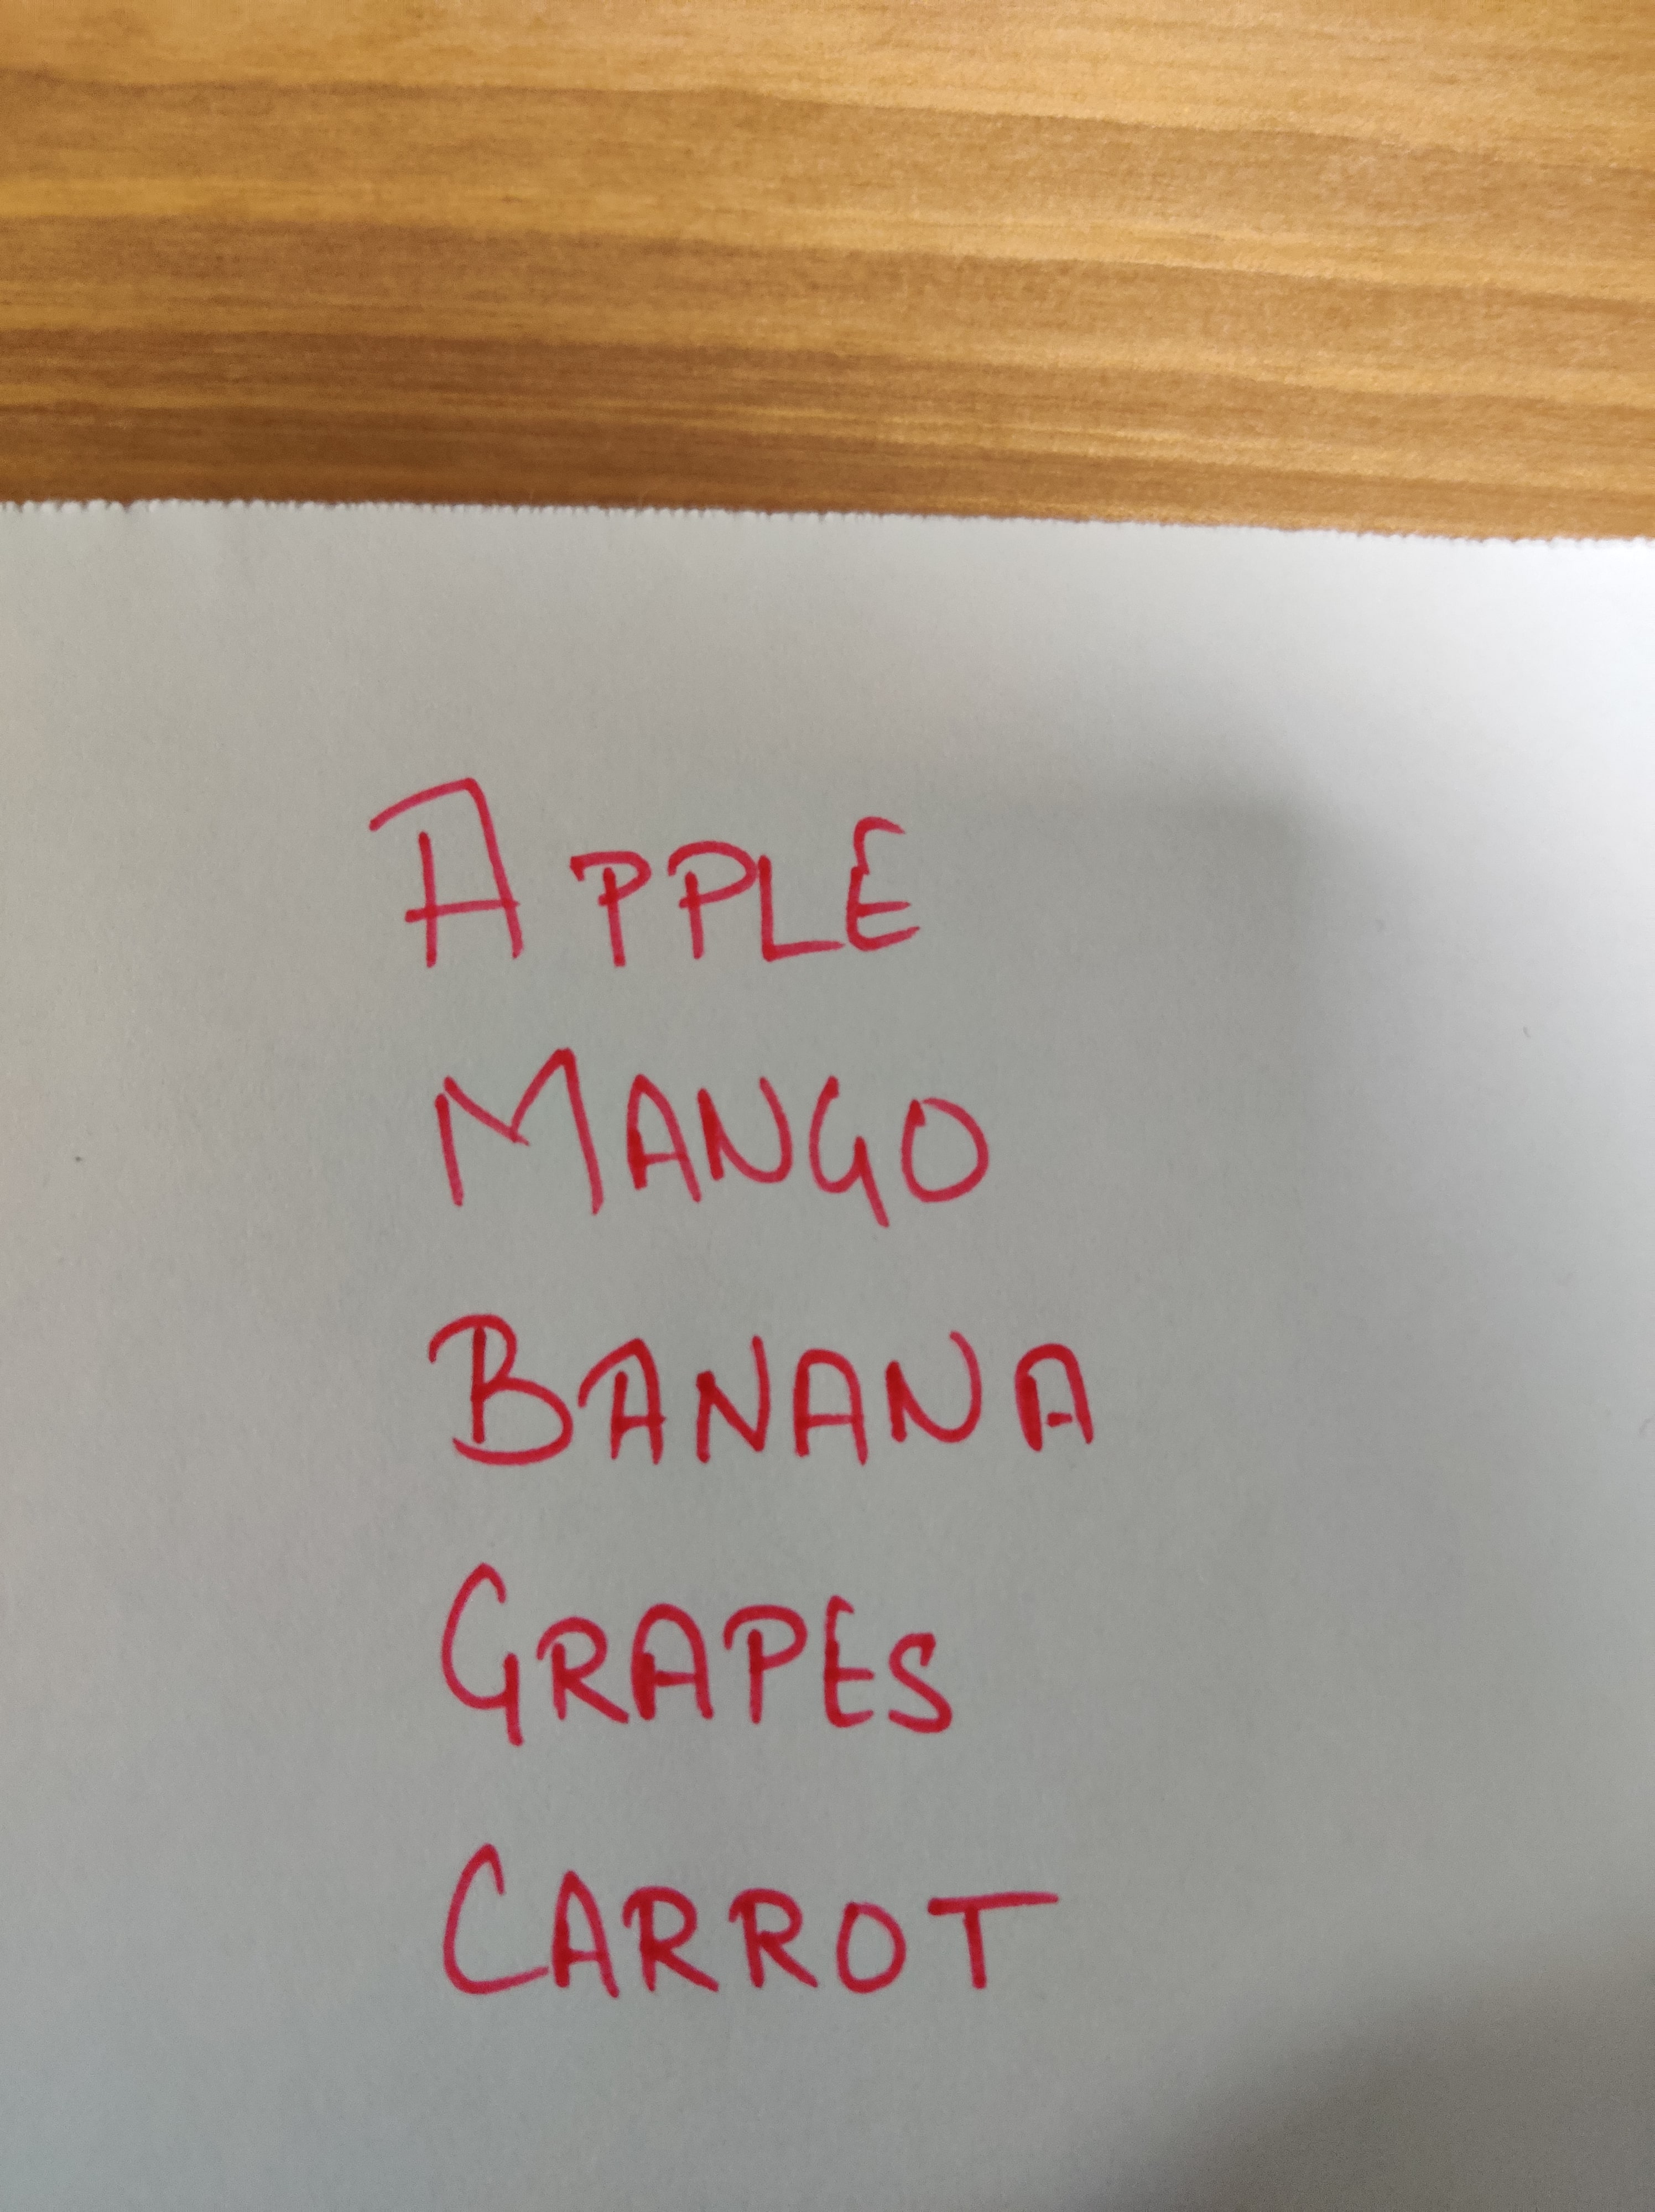 APPLE
MANGO
BANANA
GRAPES
CARROT